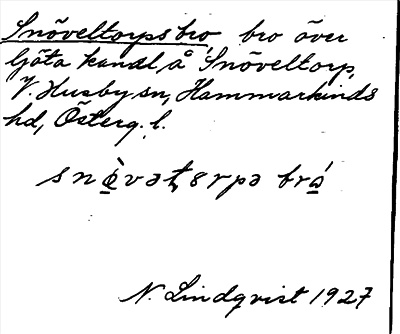 Snöveltorpsbro bro över
Göta kanal å Snöveltorp,
V. Husby sn, Hammarkinds
hd, Österg. l.
snὸ̱vəʈsrpə brό̱
N. Lindqvist 1927